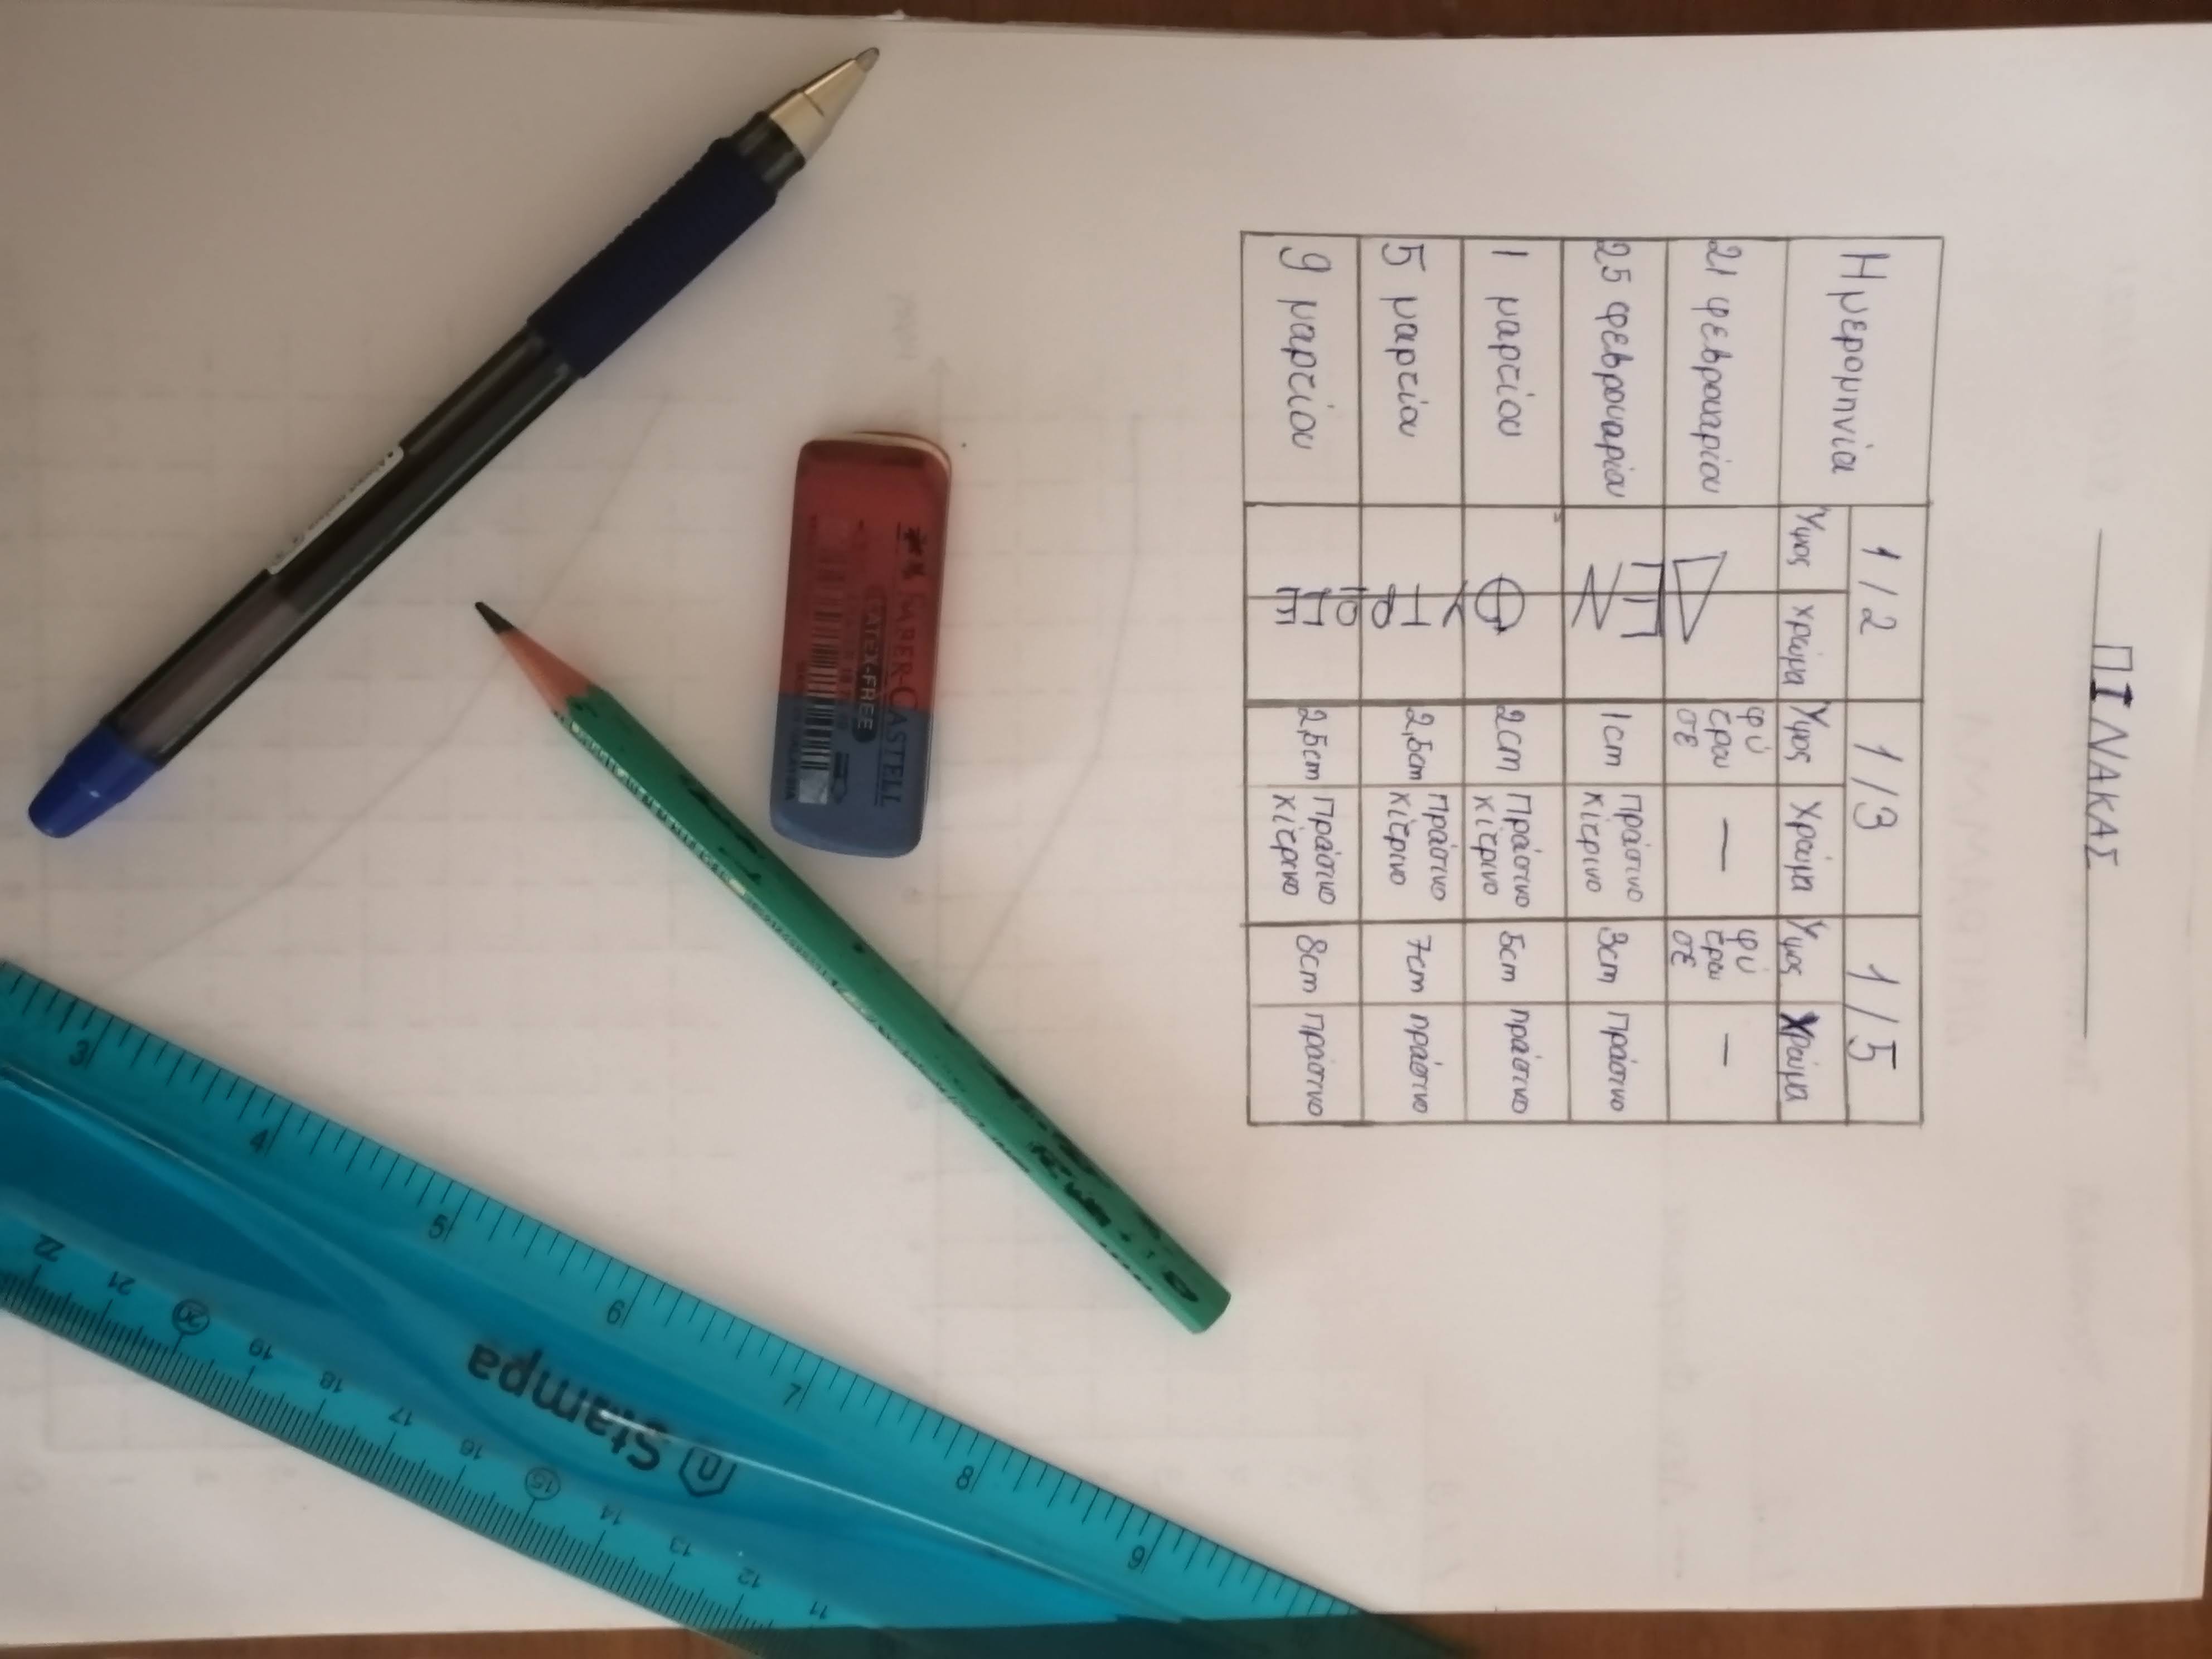 ΠΙΝΑΚΑΣ
Ημερομηνία 1/2 1/3 1/5
Ύψος χρώμα Ύψος χρώμα Ύψος Χρώμα
21 φεβρουαρίου ΔΕΝ ΦΥΤΡΩΣΕ φύτρωσε — φύτρωσε —
25 φεβρουαρίου 1cm πράσινο κίτρινο 3cm πράσινο
1 μαρτίου 2cm πράσινο κίτρινο 5cm πράσινο
5 μαρτίου 2,5cm πράσινο κίτρινο 7cm πράσινο
9 μαρτίου 2,5cm πράσινο κίτρινο 8cm πράσινο
FABER-CASTELL
LATEX-FREE
Stampa
3 4 5 6 7 8 9
22 21 20 19 18 17 16 15 14 13 12 11